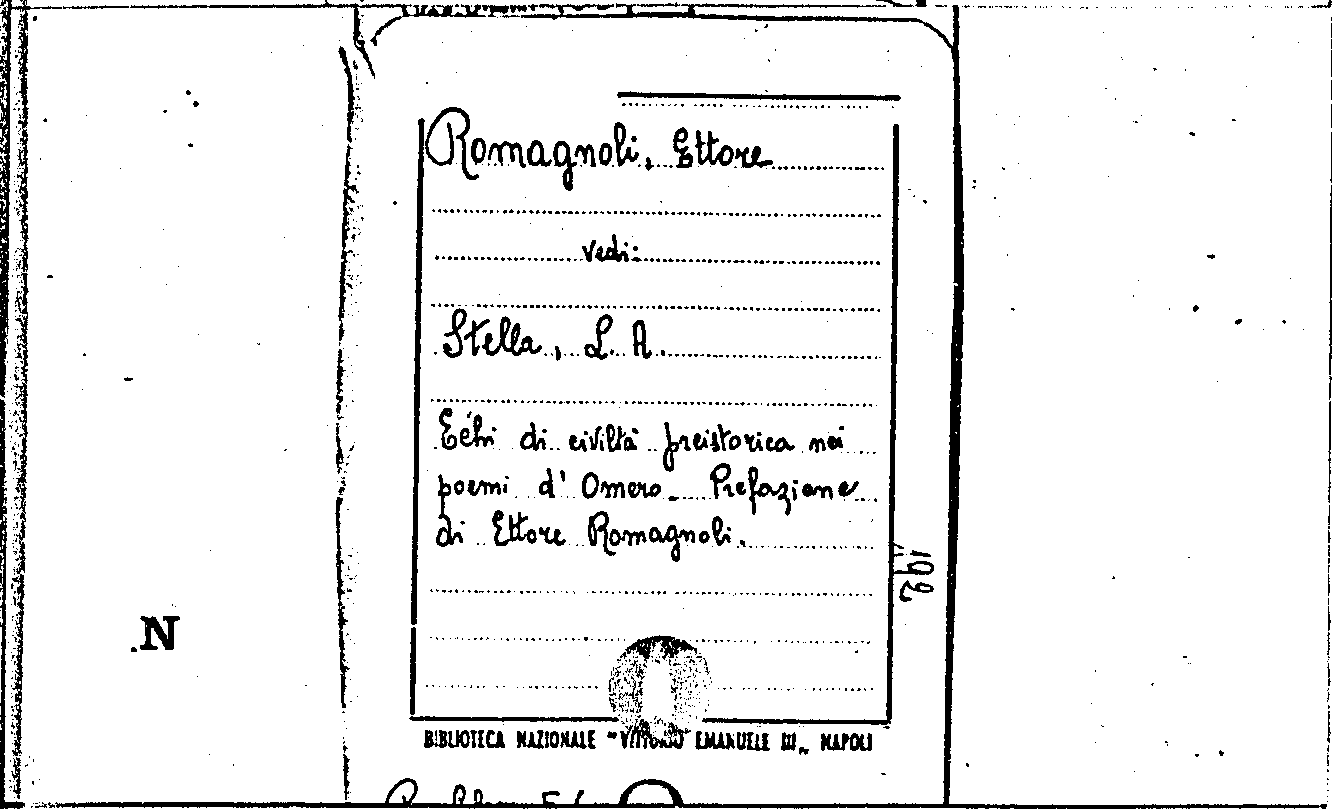 Romagnoli, Ettore
vedi:
Stella, L. A.
Echi di civiltà preistorica nei
poemi d' Omero. Prefazione
di Ettore Romagnoli.
192
N
BIBLIOTECA NAZIONALE "VITTORIO EMANUELE III„ NAPOLI